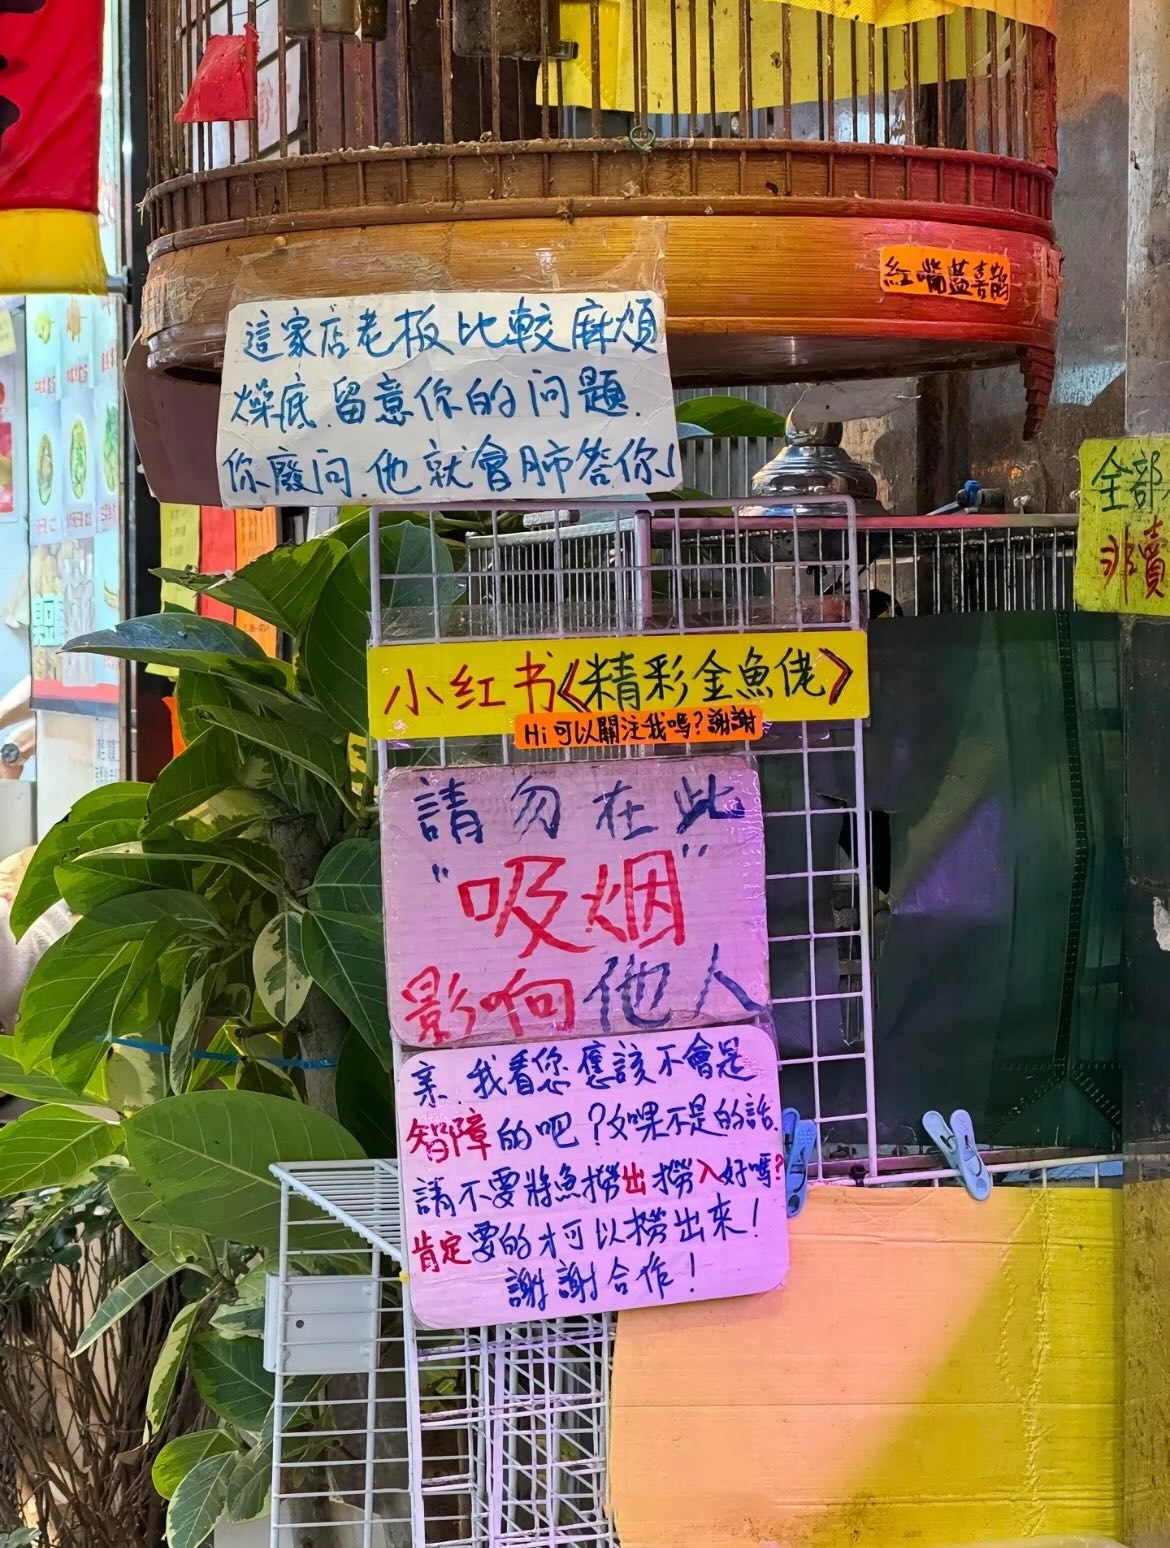 紅嘴藍喜鵲
這家店老板比較麻煩
燥底.留意你的问題.
你廢问.他就會肺答你!
全部
非賣
小红书《精彩金魚佬》
Hi可以關注我嗎?謝謝
請勿在此
"吸烟"
影响他人
亲.我看您應該不會是
智障的吧?如果不是的話.
請不要將魚撈出撈入好嗎?
肯定要的才可以撈出來!
謝謝合作!